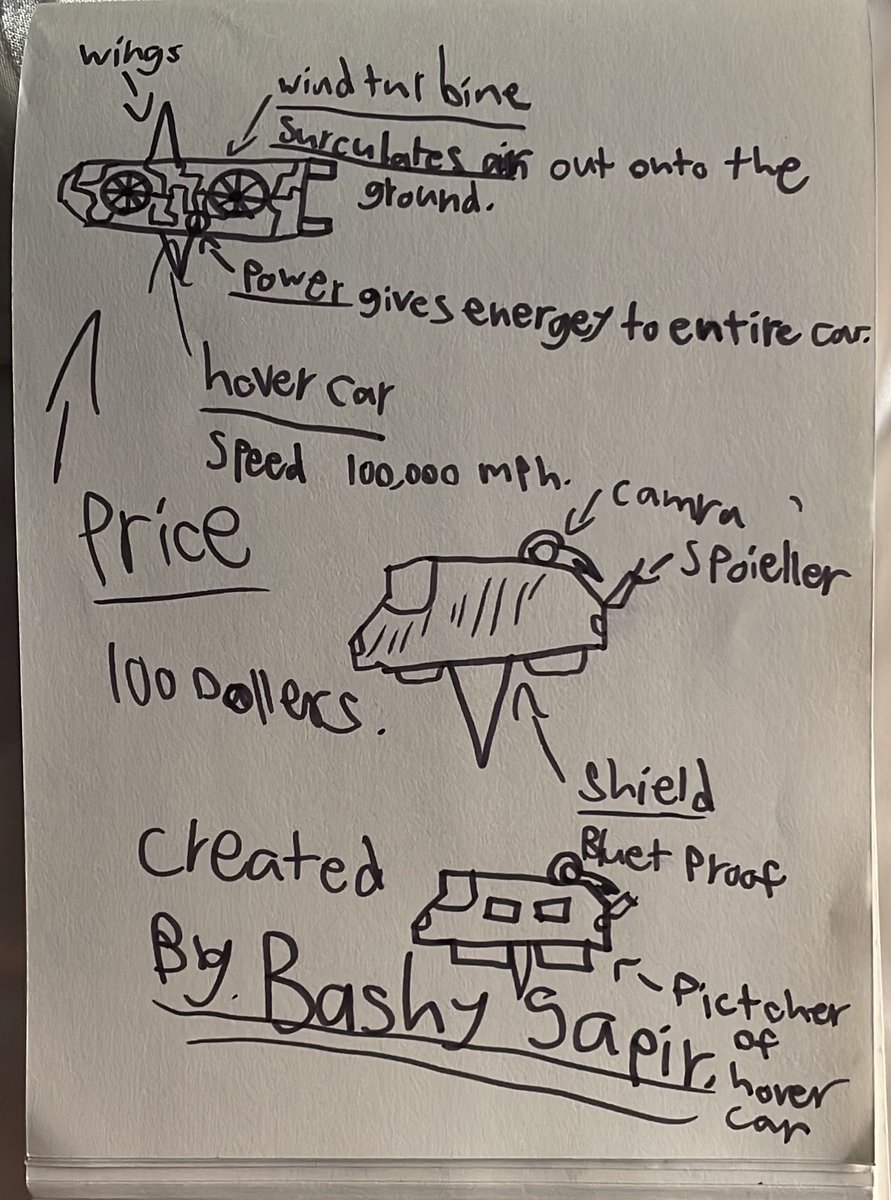 wings
wind turbine
Surculates air out onto the
ground.
Power gives energey to entire car.
hover car
Speed 100,000 mph.
Price
100 Dollers.
camra
Spoieller
Shield
Bluet Proof
Created
By. Bashy Sapir.
Pictcher
of
hover
car